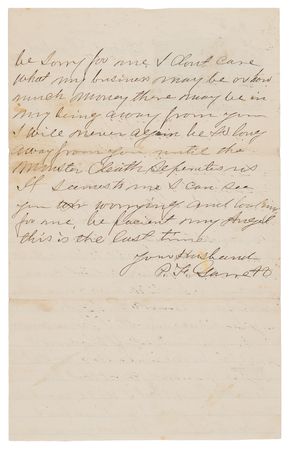 be sorry for me I dont care
what my business may be or how
much money there may be in
my being away from you
I will never again be so long
away from you until the
Monster Death Seperates us
it seems to me I can see
you worrying and looking
for me, be Pacient my Angel
this is the last time
Your Husband
P. F. Garrett